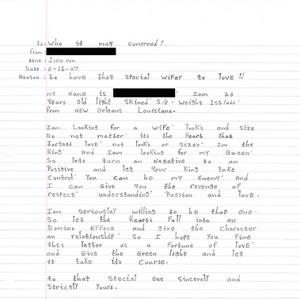 To: Who it may concerned!
From:
time: 1:00 pm
Date: 6-18-07
Reason: to have that special wifey to love!!
my Name is Iam 26
Years Old light Skined 5/8" Weight 155/lbs'
From New Orleans Louisiana.
Iam Looking for a Wife' looks and size
Do not matter its the Heart that
love' not looks or sizes' Im the
King And Iam looking for my Queen'
So lets turn an Negative to an
Positive and let Your King take
Control' You can be my Enemy' and
I can Give You the revenge of
respect' understanding' Passion and love.
Iam Seriously willing to be that one
So let the Hearts Fall into an
Domino Effect and Give the Character
an relationship' So I hope You Fine
this letter as a Fortune of love'
and Give the Green light and let
it take its Course.
to that Special One Sincerely and
Strictly Yours.